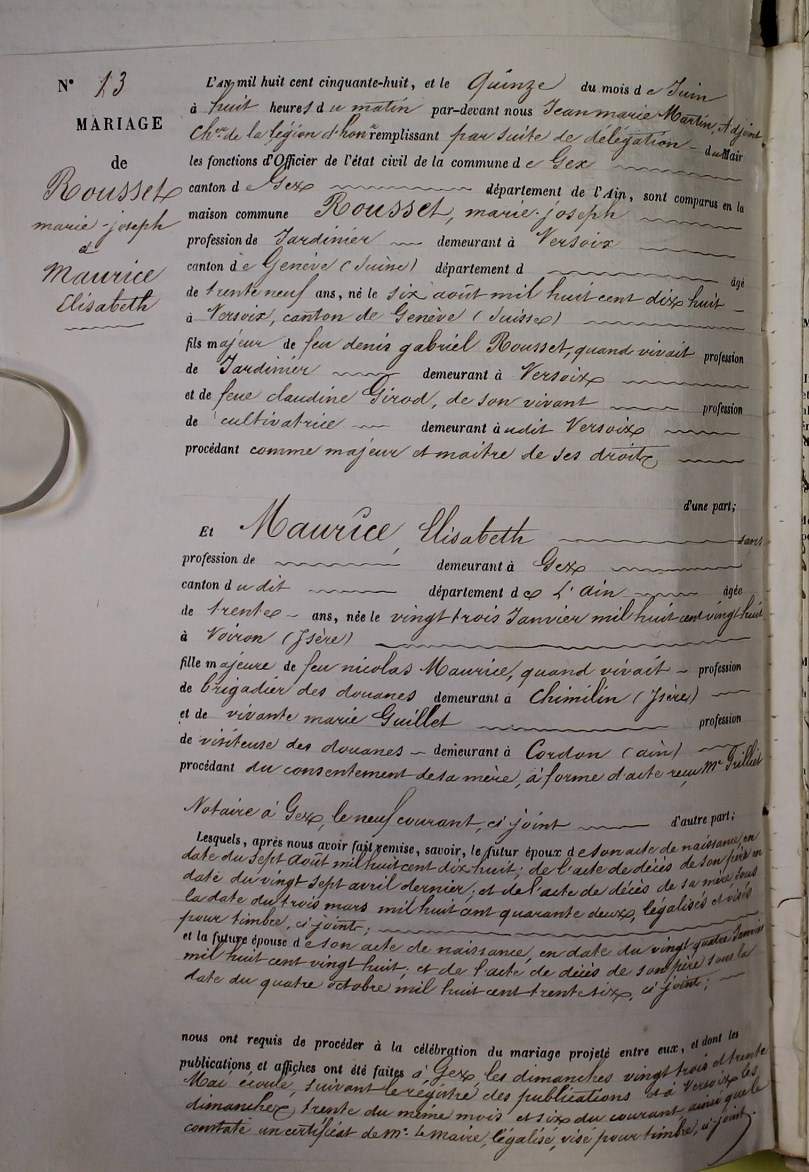 N° 13
MARIAGE
de
Rousset
marie-joseph
et
Maurice
Elisabeth
L'AN mil huit cent cinquante-huit, et le Quinze du mois de Juin
à huit heures du matin par-devant nous Jean marie Martin, Adjoint
Ch.er de la légion d'hon.r remplissant par suite de délégation du Mair
les fonctions d'Officier de l'état civil de la commune de Gex
canton de Gex département de l'Ain, sont comparus en la
maison commune Rousset, marie-joseph
profession de Jardinier demeurant à Versoix
canton de Genève (Suisse) département d âgé
de trente neuf ans, né le six août mil huit cent dix huit
à Versoix, canton de Genève (Suisse)
fils majeur de feu denis gabriel Rousset, quand vivait profession
de Jardinier demeurant à Versoix
et de feue claudine Girod, de son vivant profession
de cultivatrice demeurant audit Versoix
procédant comme majeur et maitre de ses droits
d'une part;
Et Maurice, Elisabeth sans
profession de demeurant à Gex
canton dudit département de L'ain âgée
de trente ans, née le vingt trois Janvier mil huit cent vingt huit
à Voiron (Isère)
fille majeure de feu nicolas Maurice, quand vivait profession
de brigadier des douanes demeurant à Chimilin (Isère)
et de vivante marie Guillet profession
de visiteuse des douanes demeurant à Cordon (ain)
procédant du consentement de sa mère, à forme d'acte reçu M.e
Notaire à Gex, le neuf courant, ci joint d'autre part;
Lesquels, après nous avoir fait remise, savoir, le futur époux de son acte de naissance, en
date du sept août mil huit cent dix huit; de l'acte de décès de son père en
date du vingt sept avril dernier; et de l'acte de décès de sa mère sous
la date du trois mars mil huit cent quarante deux, légalisés et visés
pour timbre, ci joints;
et la future épouse de son acte de naissance, en date du vingt quatre Janvier
mil huit cent vingt huit; et de l'acte de décès de son père sous la
date du quatre octobre mil huit cent trente six, ci joint;
nous ont requis de procéder à la célébration du mariage projeté entre eux, et dont les
publications et affiches ont été faites à Gex, les dimanches vingt trois et trente
Mai écoulé, suivant le régistre des publications et à Versoix les
dimanches, trente du même mois et six du courant ainsi que le
constate un certificat de M.r le Maire, légalisé, visé pour timbre, ci-joint.